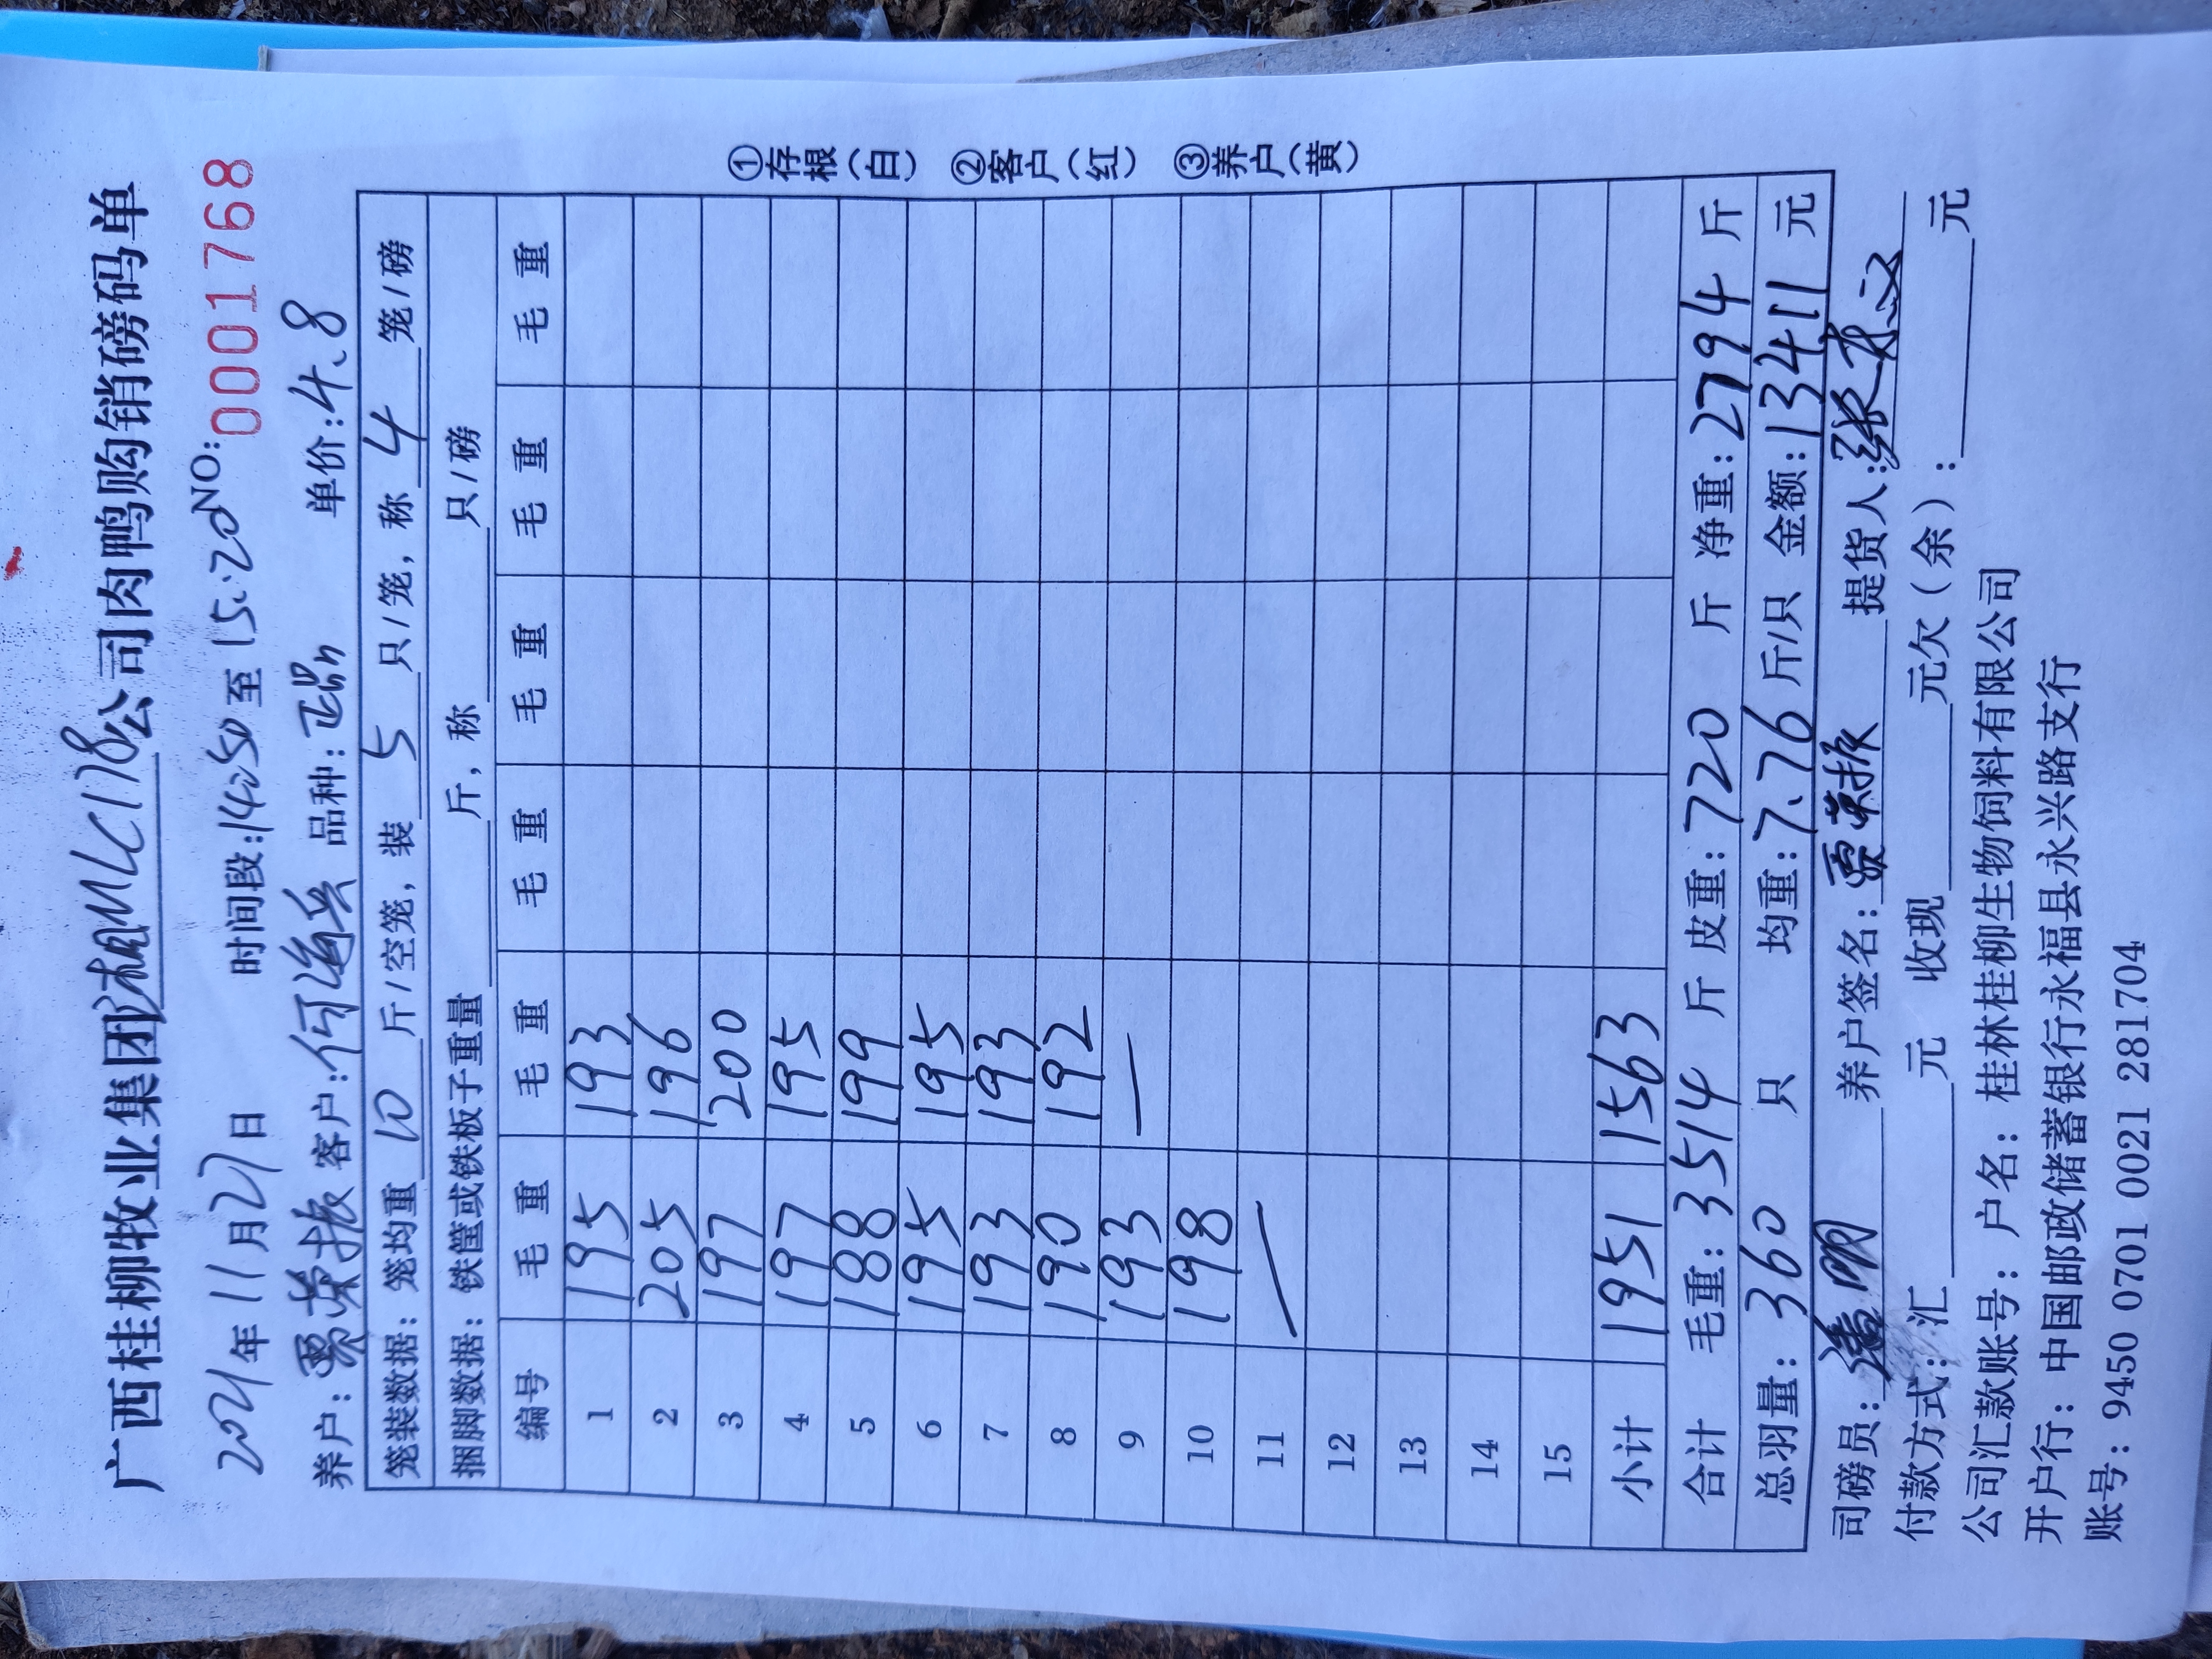 广西桂柳牧业集团桂柳MLC178公司肉鸭购销磅码单
2021年11月27日 时间段:14:50至15:20 NO: 0001768
养户:贾荣振 客户:何海兵 品种: 单价:4.8
笼装数据:笼均重 10 斤/空笼,装 5 只/笼,称 4 笼/磅
捆脚数据:铁筐或铁板子重量 斤,称 只/磅
编号 毛重 毛重 毛重 毛重 毛重 毛重
1 195 193
2 205 196
3 197 200
4 197 195
5 188 199
6 195 195
7 193 193
8 190 192
9 193 —
10 198
11 —
12
13
14
15
小计 1951 1563
合计 毛重:3514 斤 皮重:720 斤 净重:2794 斤
总羽量:360 只 均重:7.76 斤/只 金额:13411 元
司磅员: 养户签名:贾荣振 提货人:
付款方式:汇 元 收现 元欠(余): 元
公司汇款账号:户名:桂林桂柳生物饲料有限公司
开户行:中国邮政储蓄银行永福县永兴路支行
账号:9450 0701 0021 281704
①存根(白) ②客户(红) ③养户(黄)